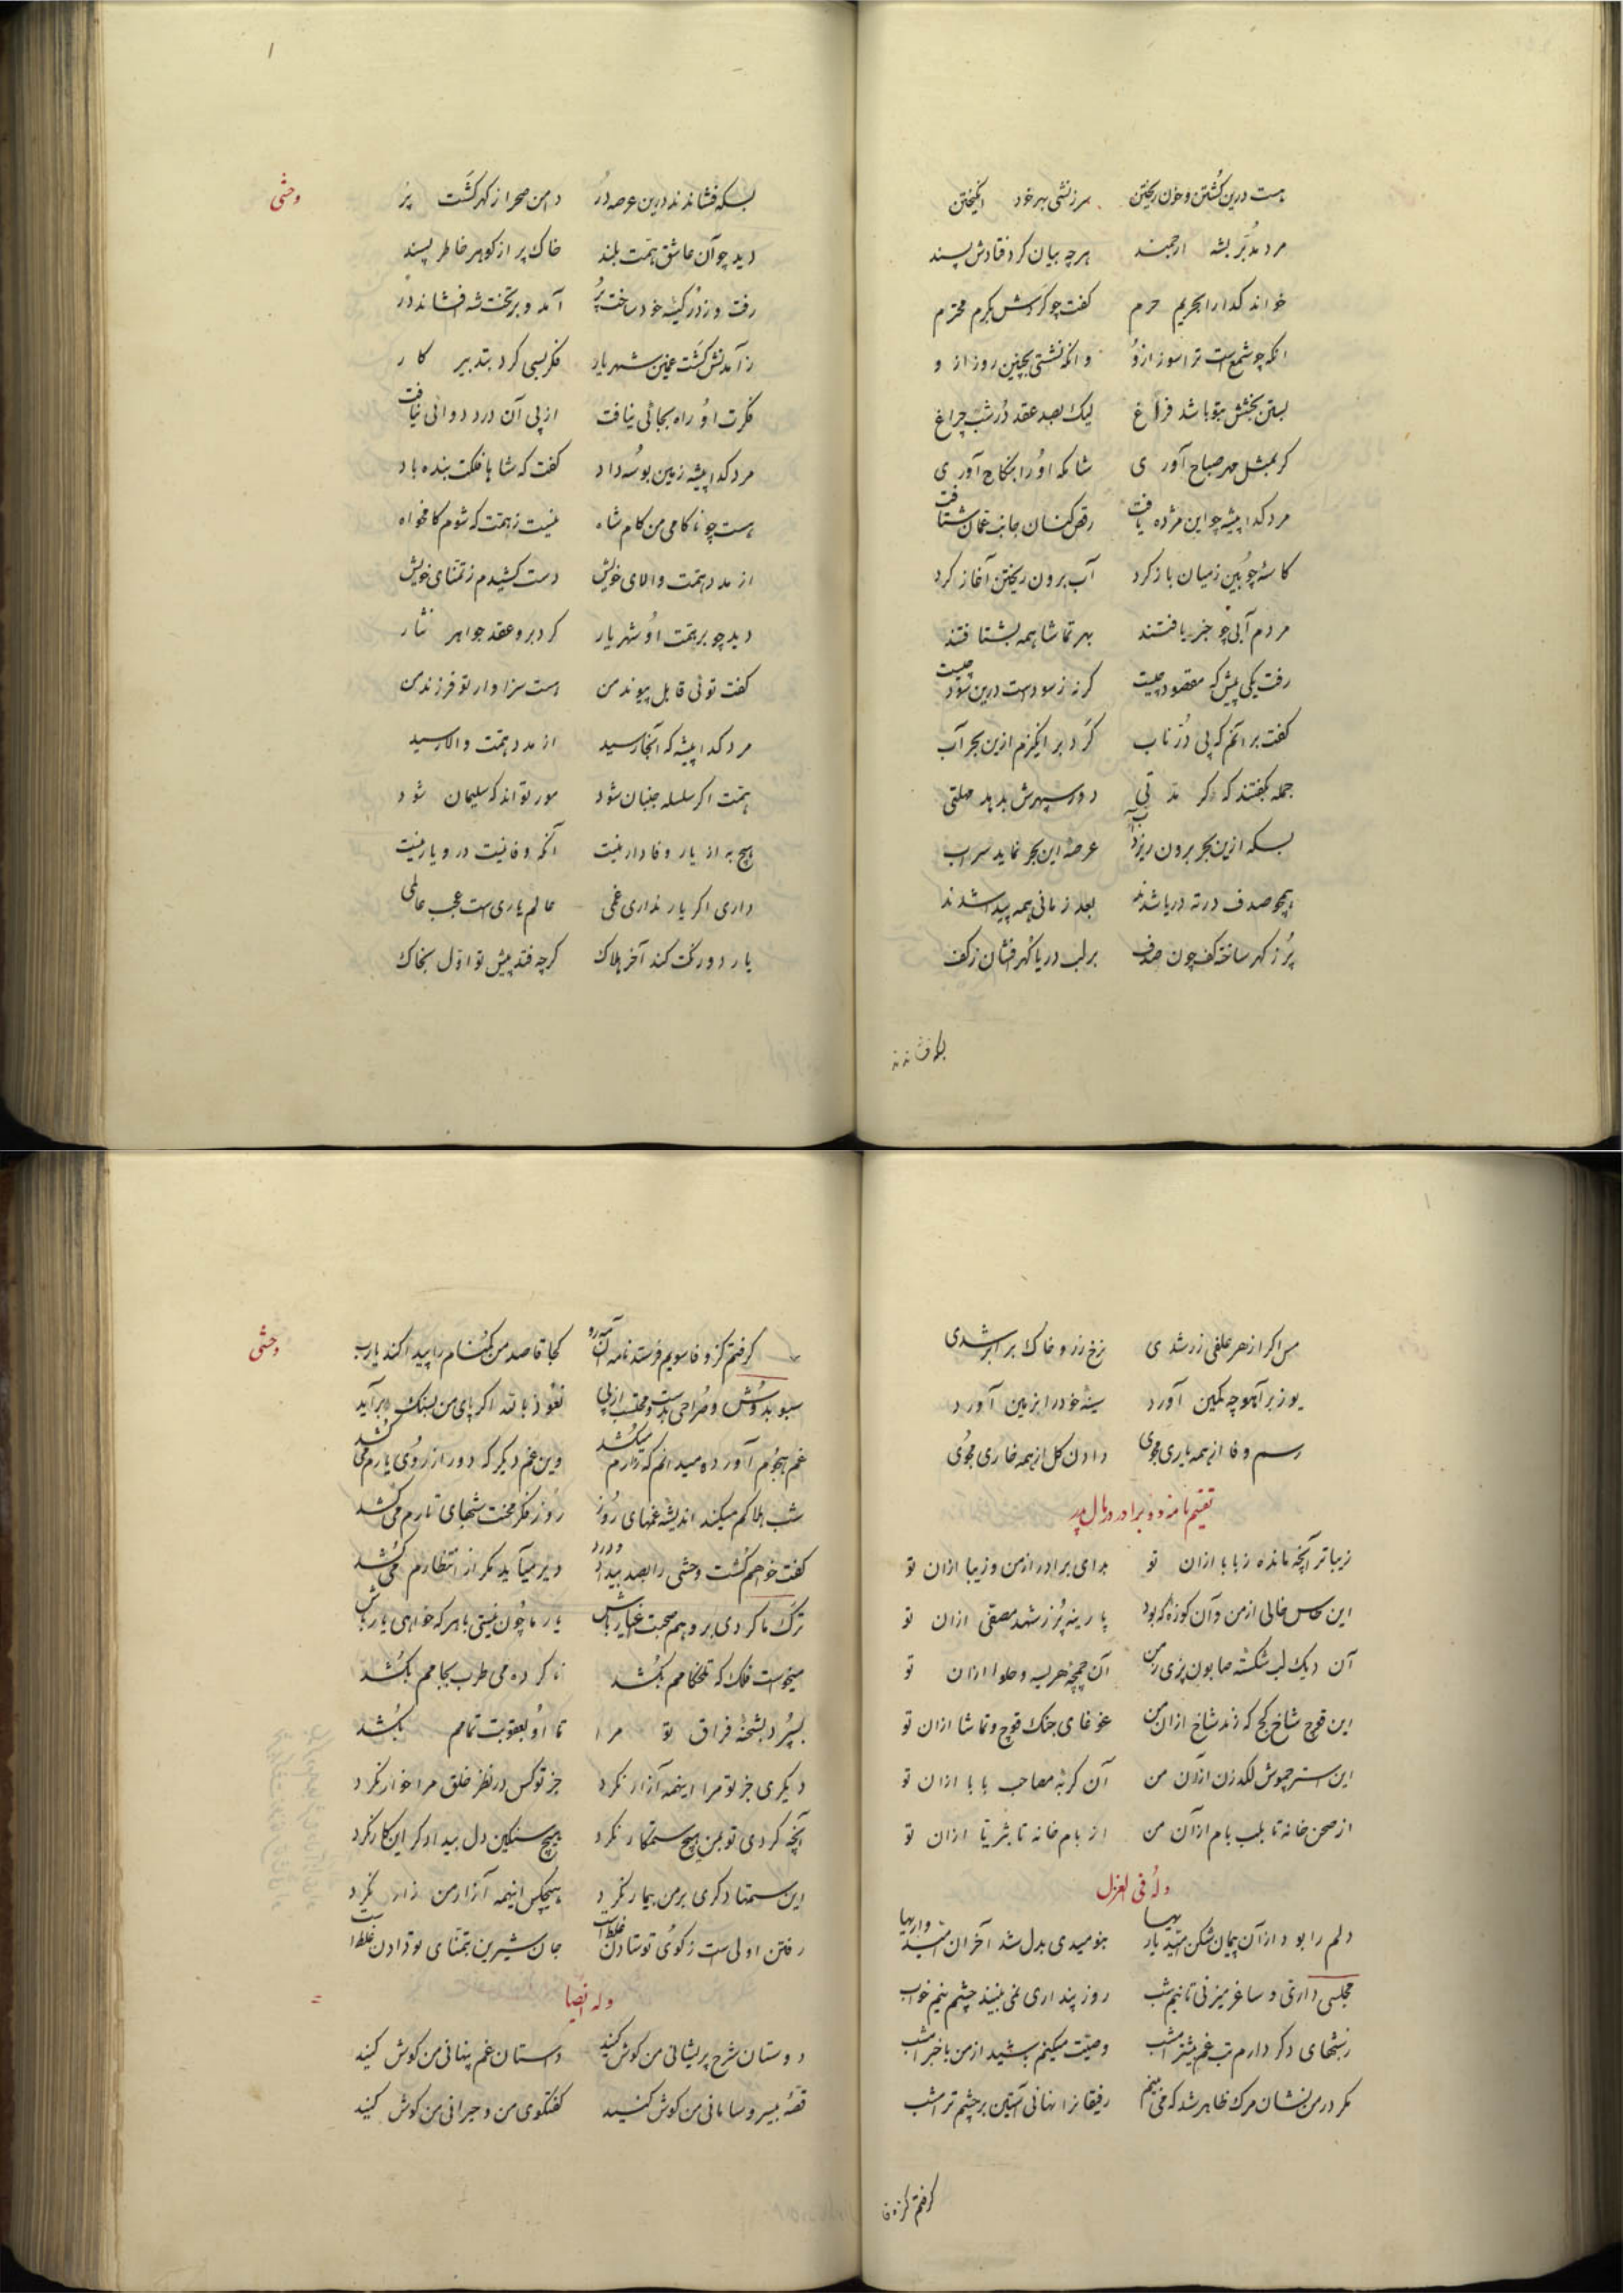 هست درین کشتن و خون ریختن سرزنشی بهر خود انگیختن
مرد مدبر بشه ارجمند هرچه بیان کرد فتادش پسند
خواند گدا را بحریم حرم گفت چو کردش بکرم محترم
انکه چو شمع است ترا سوز ازو وانکه نشستی بچنین روز ازو
بستن بخشش بتو باشد فراغ لیک بصد عقد در شب چراغ
گر بمثل مهر صباح آوری شاید که او را بنکاح آوری
مرد گدا پیشه چو این مژده یافت رقص کنان جانب عمان شتافت
کاسه چوبین ز میان باز کرد آب برون ریختن آغاز کرد
مردم آبی چو خبر یافتند بهر تماشا همه بشتافتند
رفت یکی پیش که مقصود چیست گر نه ز سوداست درین سود چیست
گفت بر آنم که پی در ناب گرد بر انگیزم ازین بحر آب
جمله بگفتند که گر مدتی دور سپهرش بدهد مهلتی
بسکه ازین بحر برون ریزد آب عرصه این بحر نماید سراب
همچو صدف در ته دریا شدند بعد زمانی همه پیدا شدند
پر ز گهر ساخته کف چون صدف بر لب دریا گهر افشان ز کف
بسکه فشاندند
وحشی
بسکه فشاندند درین عرصه در دامن صحرا ز گهر گشت پر
دید چو آن عاشق همت بلند خاک پر از گوهر خاطر پسند
رفت و ز در کیسه خود ساخت پر آمد و بر تخت شه افشاند در
ز آمدنش گشت غمین شهریار فکر بسی کرد بتدبیر کار
فکرت او راه بجائی نیافت از پی آن درد دوائی نیافت
مرد گدا پیشه زمین بوسه داد گفت که شاها فلکت بنده باد
هست چو ناکامی من کام شاه نیست ز همت که شوم کامخواه
از مدد همت والای خویش دست کشیدم ز تمنای خویش
دید چو بر همت او شهریار کرد برو عقد جواهر نثار
گفت توئی قابل پیوند من هست سزاوار تو فرزند من
مرد گدا پیشه که آنجا رسید از مدد همت والا رسید
همت اگر سلسله جنبان شود مور تواند که سلیمان شود
هیچ به از یار وفادار نیست آنکه وفا نیست درو یار نیست
داری اگر یار نداری غمی عالم یاری است عجب عالمی
یار دو رنگت کند آخر هلاک گرچه فتد پیش تو اول بخاک
مس اگر از هر علفی زر شدی نرخ زر و خاک برابر شدی
یوز بر آهو چه کمین آورد سینه خود را بزمین آورد
رسم وفا از همه یاری مجوی دادن گل از همه خاری مجوی
تقسیم نامه دو برادر در مال پدر
زیباتر آنچه مانده ز بابا ازان تو بد ای برادر از من و زیبا ازان تو
این طاس خالی از من و آن کوزه که بود پارینه پر ز شهد مصفی ازان تو
آن دیک لب شکسته صابون پزی ز من آن چمچه هریسه و حلوا ازان تو
این قوچ شاخ کج که زند شاخ ازان من غوغای جنک قوچ و تماشا ازان تو
این استر چموش لگدزن ازان من آن گربه مصاحب بابا ازان تو
از صحن خانه تا بلب بام ازان من از بام خانه تا بثریا ازان تو
وله فی الغزل
دلم را بود ازان پیمان شکن امید یاریها بنومیدی بدل شد آخر ان امیدواریها
مجلسی داری و ساغر میزنی تا نیم شب روز پنداری نمی بیند چشم نیم خواب
ز شبهای دگر دارم تب غم بیشتر امشب وصیت میکنم باشید از من با خبر امشب
مگر در من نشان مرگ ظاهر شد که می بینم رفیقانرا نهانی آستین بر چشم تر امشب
گرفتم کز وفا
وحشی
گرفتم کز وفا سویم فرستد نامه آن مه رو کجا قاصد من گمنام را پیدا کند یارب
سبو بدوش و صراحی بدست و محتسب از پی نعوذ بالله اگر پای من بسنگ برآید
غم هجوم آورده میدانم که زارم میکشد وین غم دیگر که دور از روی یارم می کشد
شب هلاکم میکند اندیشه غمهای روز روز فکر محنت شبهای تارم می کشد
گفت خواهم کشت وحشی را بصد بیداد و درد دیر میآید مگر از انتظارم می کشد
ترک ما کردی برو هم صحبت اغیار باش یار ما چون نیستی با هرکه خواهی یار باش
میخواست فلک که تلخکامم بکشد ناکرده می طرب بجامم بکشد
بسپرد بشحنه فراق تو مرا تا او بعقوبت تمامم بکشد
دیگری جز تو مرا اینهمه آزار نکرد جز تو کس در نظر خلق مرا خوار نکرد
آنچه کردی تو بمن هیچ ستمکار نکرد هیچ سنگین دل بیدادگر این کار نکرد
این ستمها دگری بر من بیمار نکرد هیچکس اینهمه آزار من زار نکرد
رفتن اولی است ز کوی تو ستادن غلط است جان شیرین بتمنای تو دادن غلط است
وله ایضا
دوستان شرح پریشانی من گوش کنید داستان غم پنهانی من گوش کنید
قصه بیسروسامانی من گوش کنید گفتگوی من و حیرانی من گوش کنید